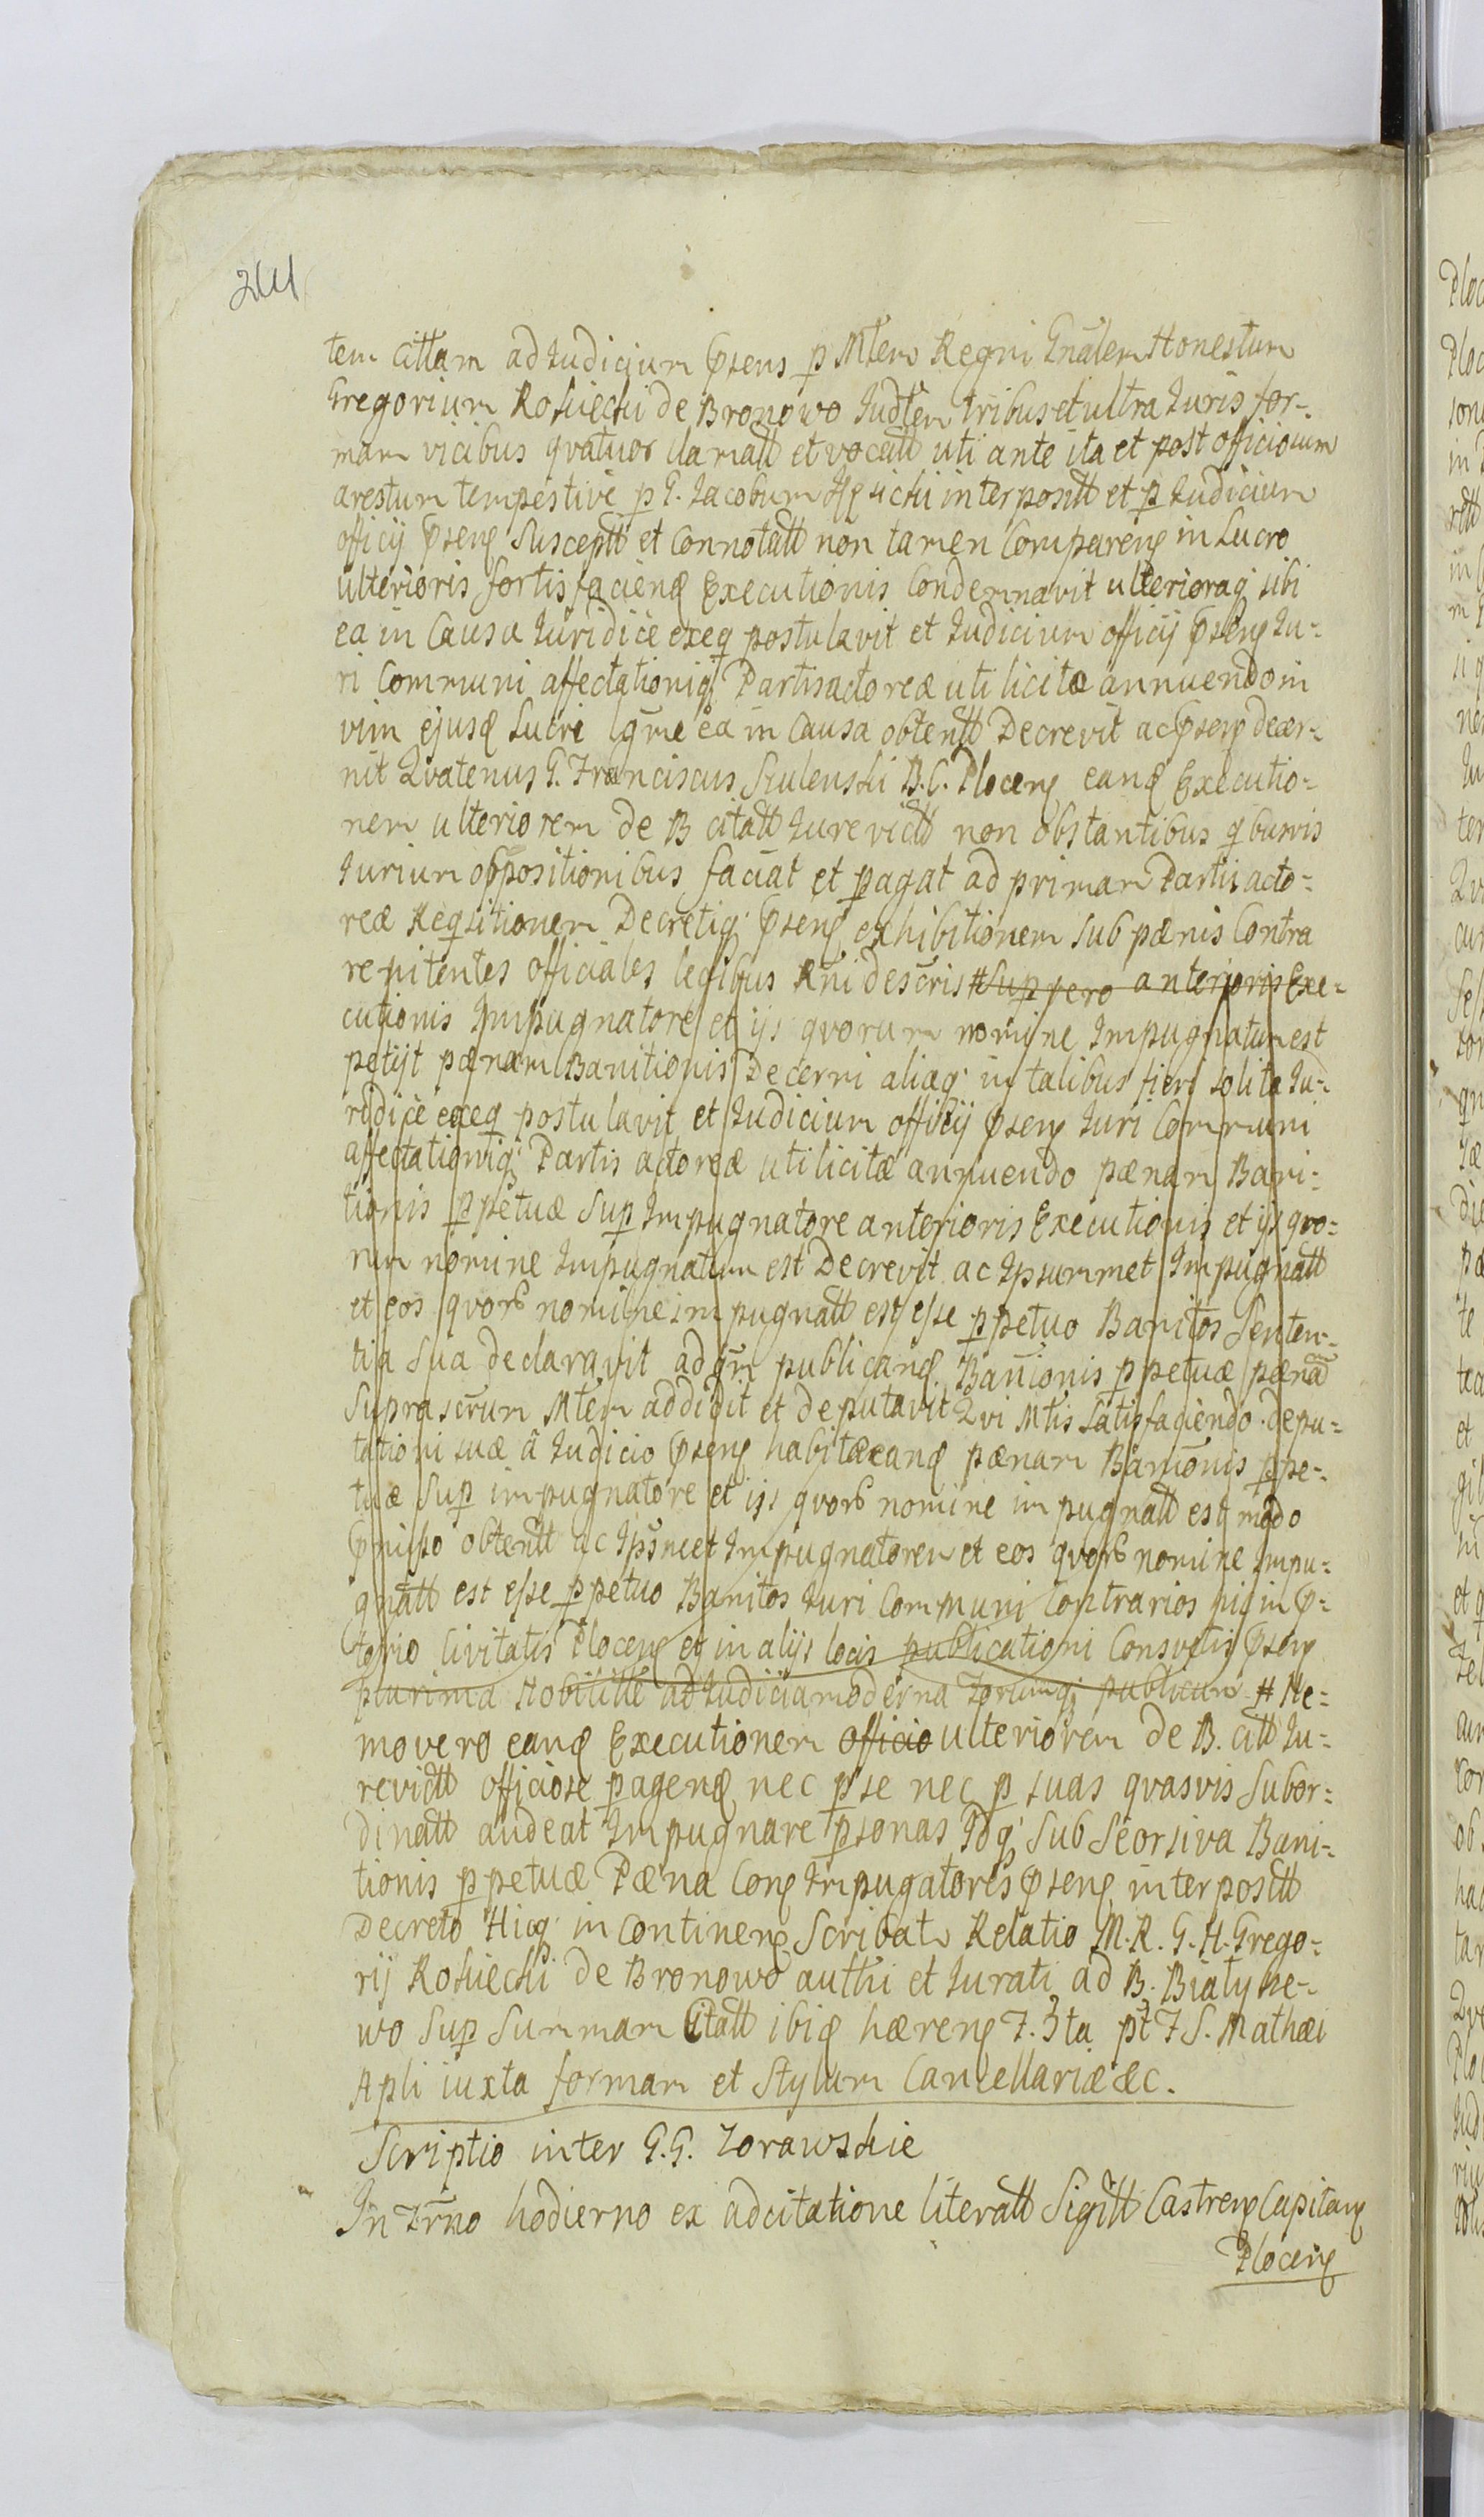 244
tem Cittam ad Judicium Pñens p Mtem Regni Gnãlem Honestum
Gregorium Kosiecki de Bronowo Judtem tribus et ultra Juris for=
mam vicibus qvatuor clamatt et vocatt uti ante ita et post officiosum
arestum tempestive p G. Jacobum interpositt et p Judicium
officij Pñens Susceptt et Connotatt non tamen Comparens in Lucro
ulterioris fortis faciend Executionis Condemnavit ulterioraq sibi
ea in Causa Juridice exeq postulavit et Judicium officij Pñens Ju=
ri Communi affectationiq Partis actoreæ uti licitæ annuendo in
vim ejusd Lucri ea in Causa obtentt Decrevit ac Pñens decer=
nit Qvatenus G. Franciscus Szulenski B.C. Plocens eand Executio=
nem ulteriorem de B citatt Jurevictt non obstantibus qbusvis
Jurium oppositionibus faciat et pagat ad primam Partis acto=
reæ Reqsitionem Decretiq Pñens exhibitionem sub pænis Contra
renitentes officiales legibus Rñi descris # Sup vero anterioris Exe=
cutionis Impugnatore et ijs qvorum nomine Impugnatum est
petijt pænam Banitionis Decerni aliaq in talibus fieri solita Ju=
ridice exeq postulavit et Judicium officij Pñens Juri Communi
affectationiq Partis actoreæ uti licitæ annuendo pænam Bani=
tionis ppetuæ Sup Impugnatore anterioris Executionis et ijs qvo=
rum nomine Impugnatum est Decrevit ac Ipsummet Impugnatt
et eos qvorum nomine impugnatt est esse ppetuo Banitos Senten=
tia Sua declaravit ad qm publicand Banionis ppetuæ pænã
Suprascrum Mtem addidit et deputavit Qvi Mtis Satisfaciendo depu=
tationi suæ â Judicio Pñens habitæ eand pænam Banionis ppe=
tuæ Sup impugnatore et ijs qvorum nomine impugnatt est modo
Pmisso obtentt ac Ipsmet Impugnatorem et eos qvorum nomine Impu=
gnatt est esse ppetuo Banitos Juri Communi Contrarios hic in P=
torio Civitatis Plocens et in alijs locis publicationi Consvetis Pñens
plurima Nobilitte ad Judicia moderna publicum # Ne=
mo vero eand Executionem officio ulteriorem de B. citt Ju=
revictt officiose pagend nec p se nec p suas qvasvis Subor=
dinatt audeat Impugnare psonas Idq Sub Seorsiva Bani=
tionis ppetuæ Pæna Cong Impugatores Pñens interpositt
Decreto Hicq in Continens Scribatr Relatio M.R.G.H. Grego=
rij Kosiecki de Bronowo authi et Jurati ad B. Białyse=
wo Sup Summam Citatt ibiq hærens F. 3ta pt F S. Mathæi
Apli iuxta formam et Stylum Cancellariæ &c.
Scriptio inter G.G. Zorawskie
In Trmo hodierno ex adcitatione literatt Sigitt Castrens Capitans
Plocens